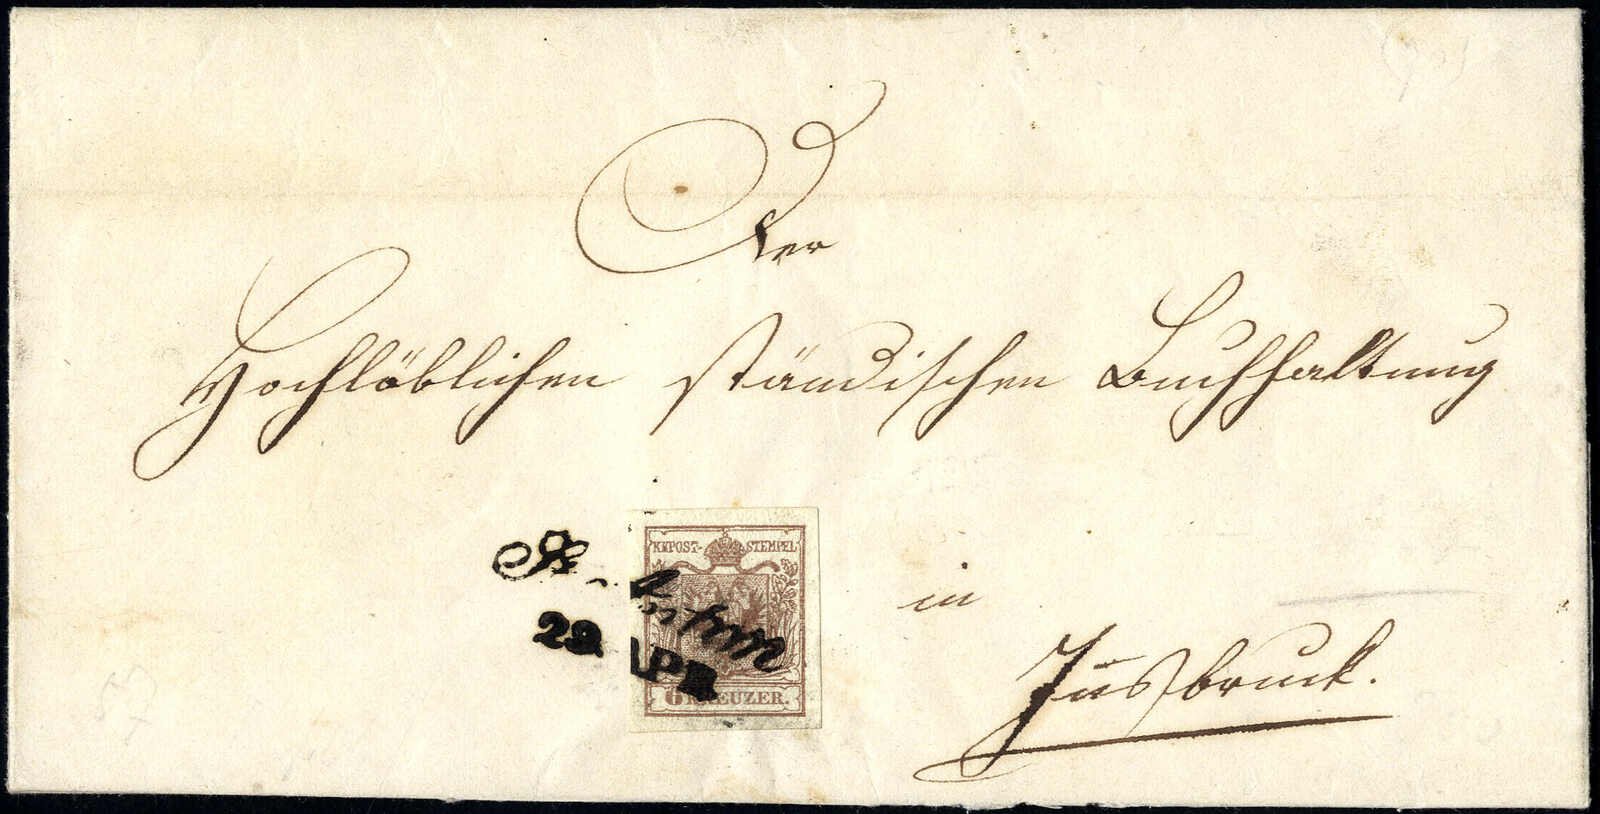 Der
Hochlöblichen ständischen Buchhaltung
KKPOST-STEMPEL
29. APR
6 KREUZER.
in
Innsbruck.